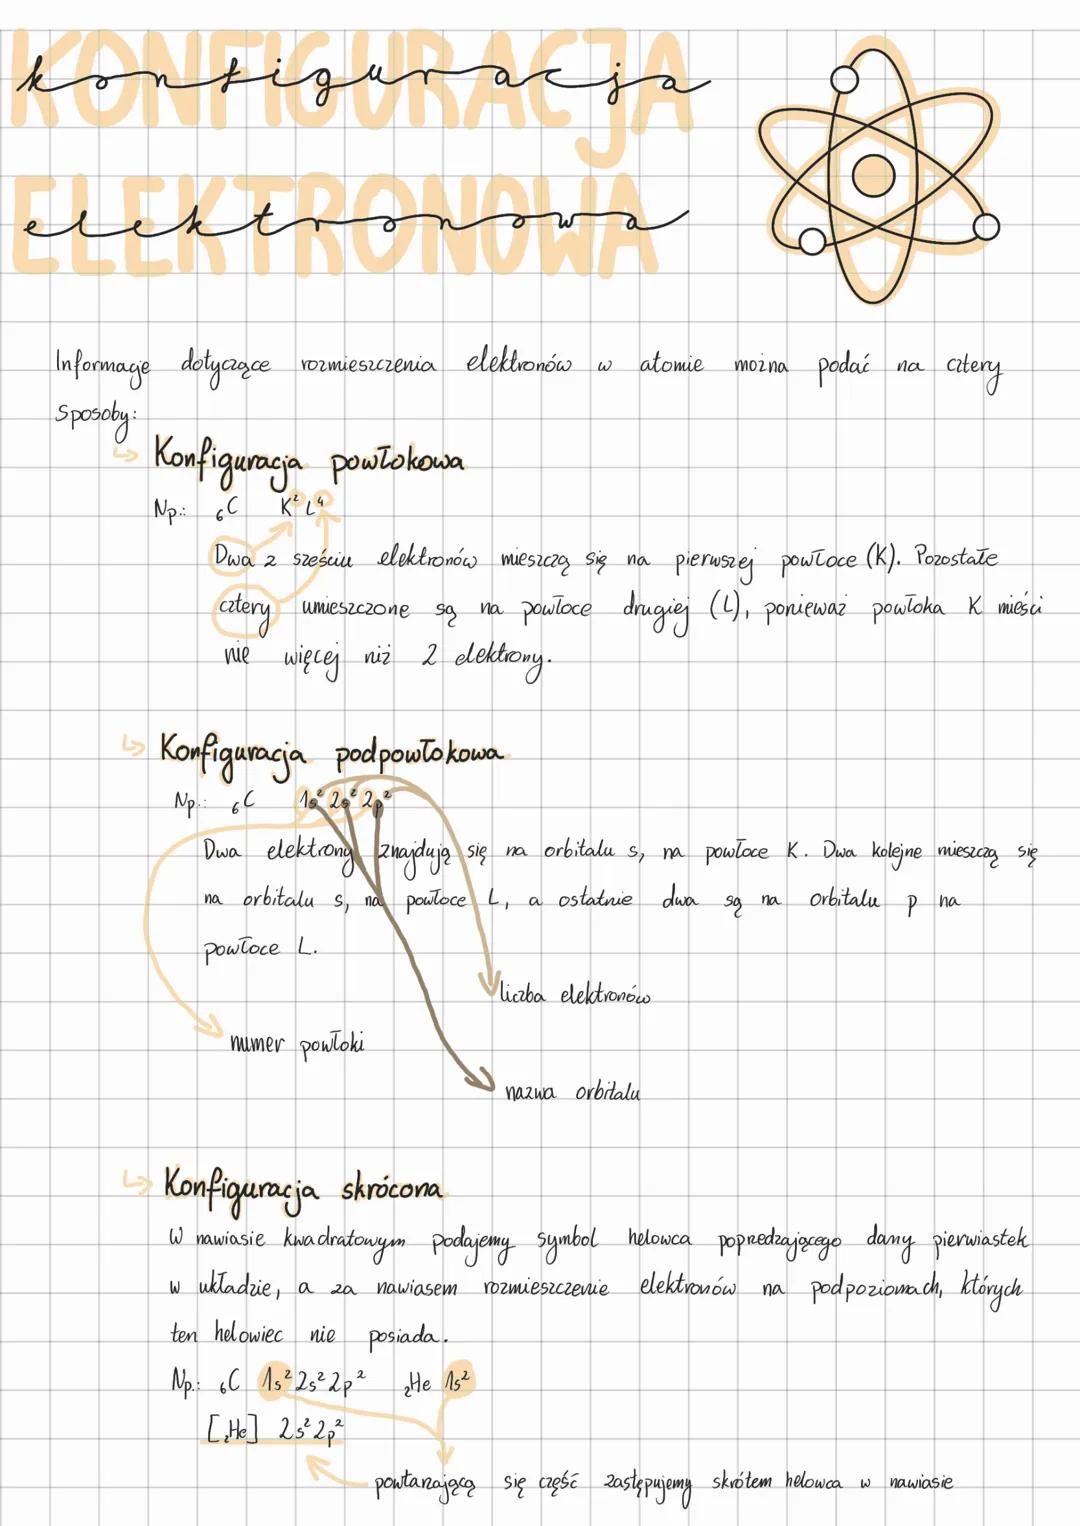 KONFIGURACJA
konfiguracja
ELEKTRONOWA
elektronowa
Informacje dotyczące rozmieszczenia elektronów w atomie można podać na cztery
sposoby:
↳ Konfiguracja powłokowa
Np.: ₆C K² L⁴
Dwa z sześciu elektronów mieszczą się na pierwszej powłoce (K). Pozostałe
cztery umieszczone są na powłoce drugiej (L), ponieważ powłoka K mieści
nie więcej niż 2 elektrony.
↳ Konfiguracja podpowłokowa
Np.: ₆C 1s² 2s² 2p²
Dwa elektrony znajdują się na orbitalu s, na powłoce K. Dwa kolejne mieszczą się
na orbitalu s, na powłoce L, a ostatnie dwa są na orbitalu p na
powłoce L.
liczba elektronów
numer powłoki
nazwa orbitalu
↳ Konfiguracja skrócona
W nawiasie kwadratowym podajemy symbol helowca poprzedzającego dany pierwiastek
w układzie, a za nawiasem rozmieszczenie elektronów na podpoziomach, których
ten helowiec nie posiada.
Np.: ₆C 1s² 2s² 2p² ₂He 1s²
[₂He] 2s² 2p²
powtarzającą się część zastępujemy skrótem helowca w nawiasie